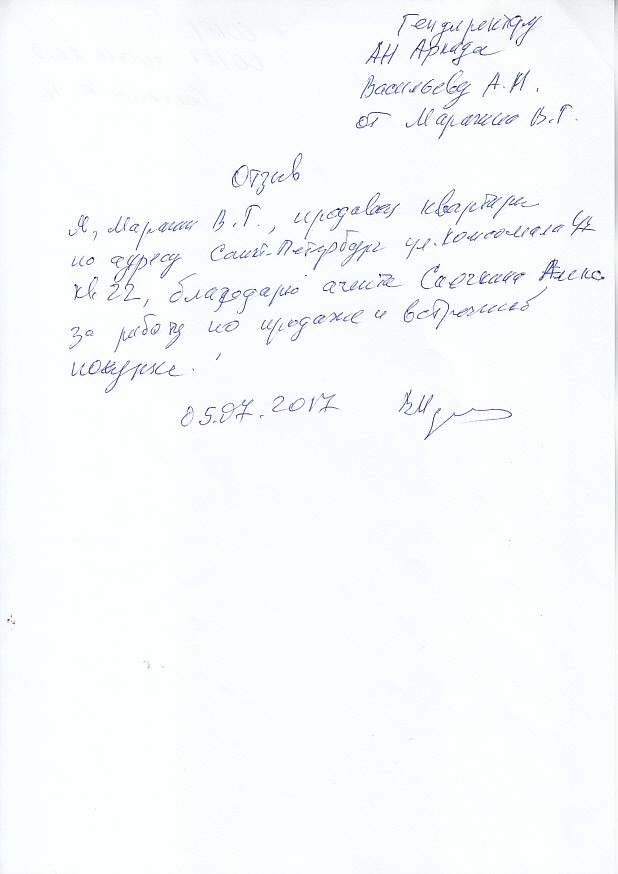 Гендиректору
АН Аркада
Васильеву А.Н.
от Марагина В.Г.
Отзыв
Я, Марагин В.Г., продавец квартиры
по адресу Санкт-Петербург ул. Комсомола
кв 22, благодарю агента
за работу по продаже и встречной
покупке.
05.07.2017